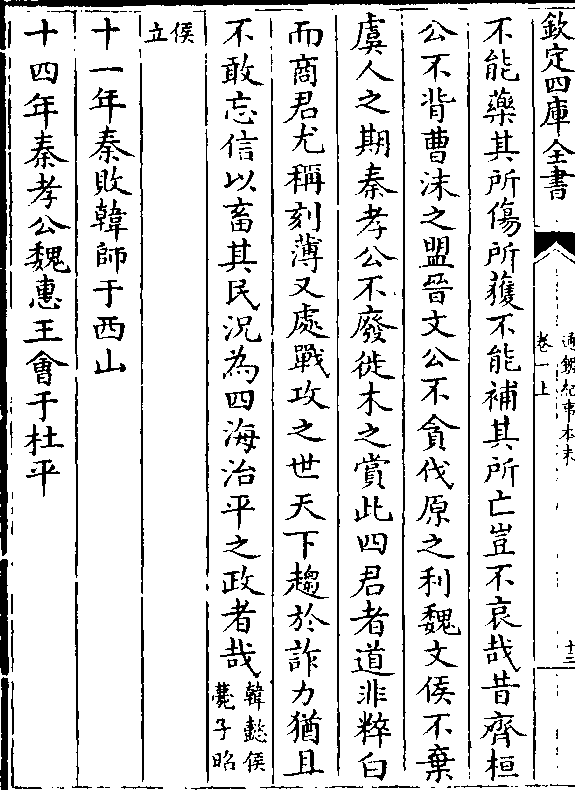 欽定四庫全書
通鑑紀事本末
卷一上
十三
不能藥其所傷所獲不能補其所亡豈不哀哉昔齊桓
公不背曹沫之盟晉文公不貪伐原之利魏文侯不棄
虞人之期秦孝公不廢徙木之賞此四君者道非粹白
而商君尤稱刻薄又處戰攻之世天下趨於詐力猶且
不敢忘信以畜其民況為四海治平之政者哉韓懿侯薨子昭
侯立
十一年秦敗韓師于西山
十四年秦孝公魏惠王會于杜平